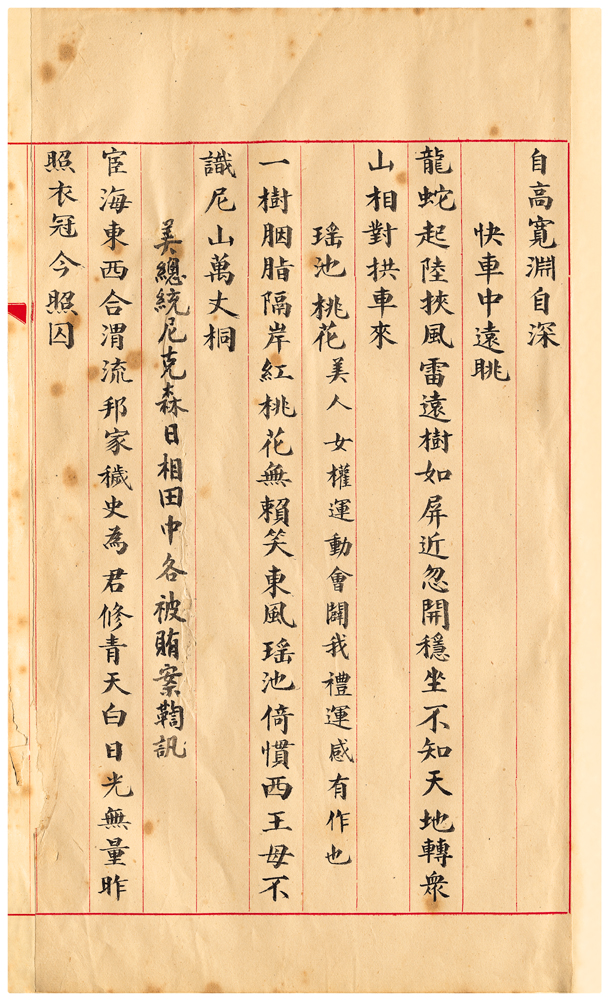 自高寬淵自深
快車中遠眺
龍蛇起陸挾風雷遠樹如屏近忽開穩坐不知天地轉衆
山相對拱車來
瑤池桃花美人女權運動會闢我禮運感有作也
一樹胭脂隔岸紅桃花無賴笑東風瑤池倚慣西王母不
識尼山萬丈桐
美總統尼克森日相田中各被賄案鞫訊
宦海東西合渭流邦家穢史為君修青天白日光無量昨
照衣冠今照囚